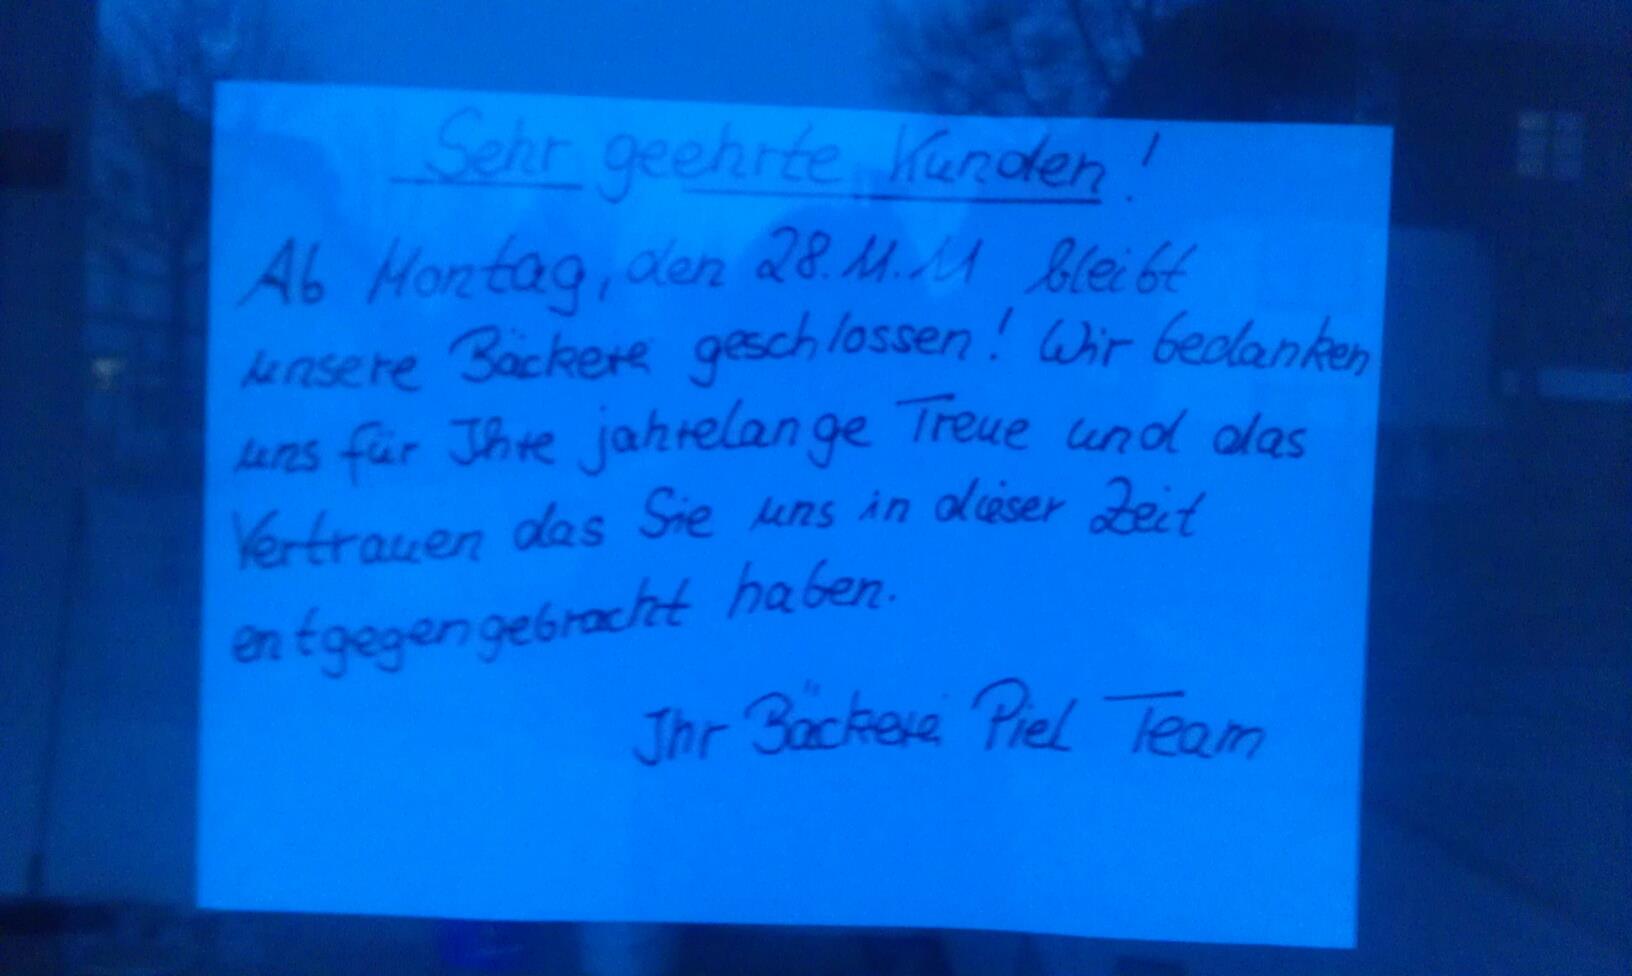 Sehr geehrte Kunden!
Ab Montag, den 28.11.11 bleibt
unsere Bäckerei geschlossen! Wir bedanken
uns für Ihre jahrelange Treue und das
Vertrauen das Sie uns in dieser Zeit
entgegengebracht haben.
Ihr Bäckerei Piel Team